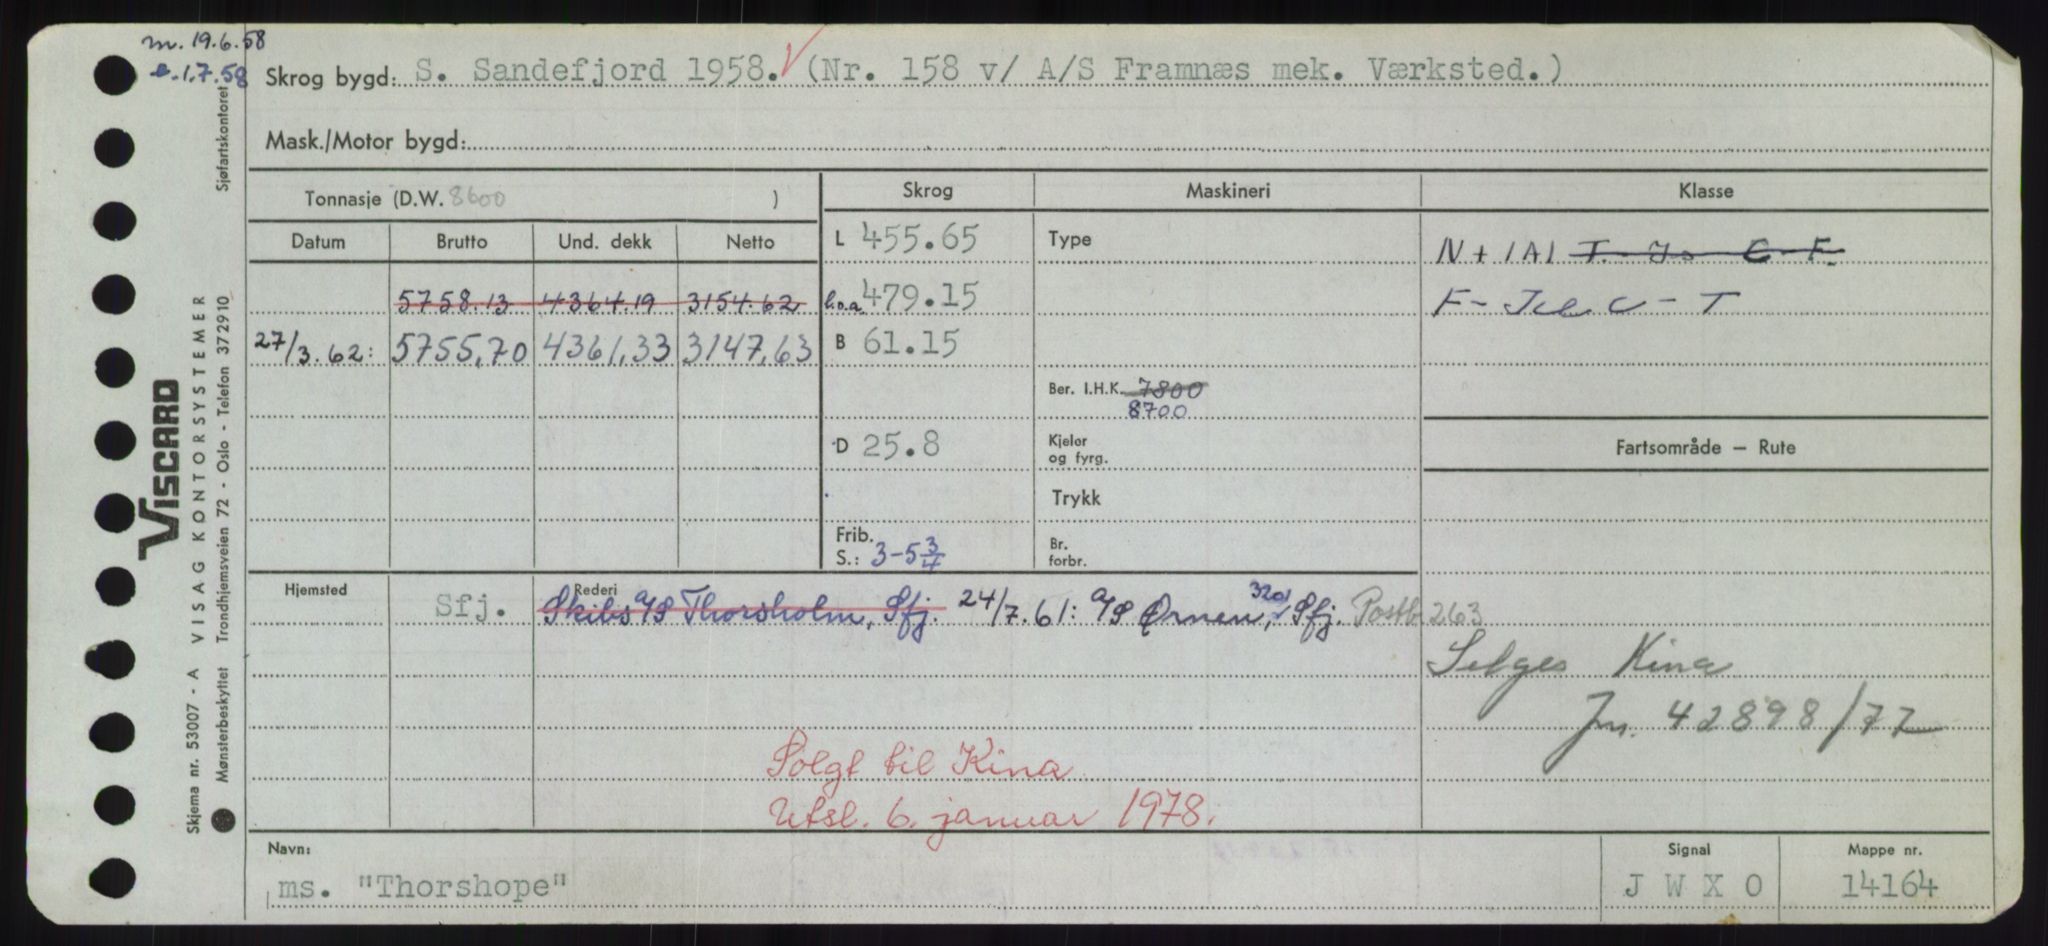 m. 19.6.58
e. 1.7.58
Skrog bygd: S. Sandefjord 1958. (Nr. 158 v/ A/S Framnæs mek. Værksted.)
Mask./Motor bygd:
Tonnasje (D.W. 8600 )
Skrog Maskineri Klasse
Datum Brutto Und. dekk Netto
L 455.65 Type N + 1A1 T.
5758.13 4364.19 3154.62 l.o.a 479.15 F -
27/3.62: 5755,70 4361,33 3147,63 B 61.15
Ber. I.H.K. 7800
8700
D 25.8 Kjeler og fyrg. Fartsområde – Rute
Trykk
Frib. S.: 3-5 3/4 Br. forbr.
Hjemsted Rederi
Sfj. Skibs A/S Thorsholm, Sfj. 24/7.61: A/S Ørnen, 320, Sfj. Postb 263
Selges Kina
Jn. 42898/77
Solgt til Kina
Utsl. 6. januar 1978.
Navn: Signal Mappe nr.
ms. "Thorshope" J W X O 14164
Sjøfartskontoret
VISCARD
Skjema nr. 53007 - A VISAG KONTORSYSTEMER
Mønsterbeskyttet Trondhjemsveien 72 - Oslo - Telefon 372910